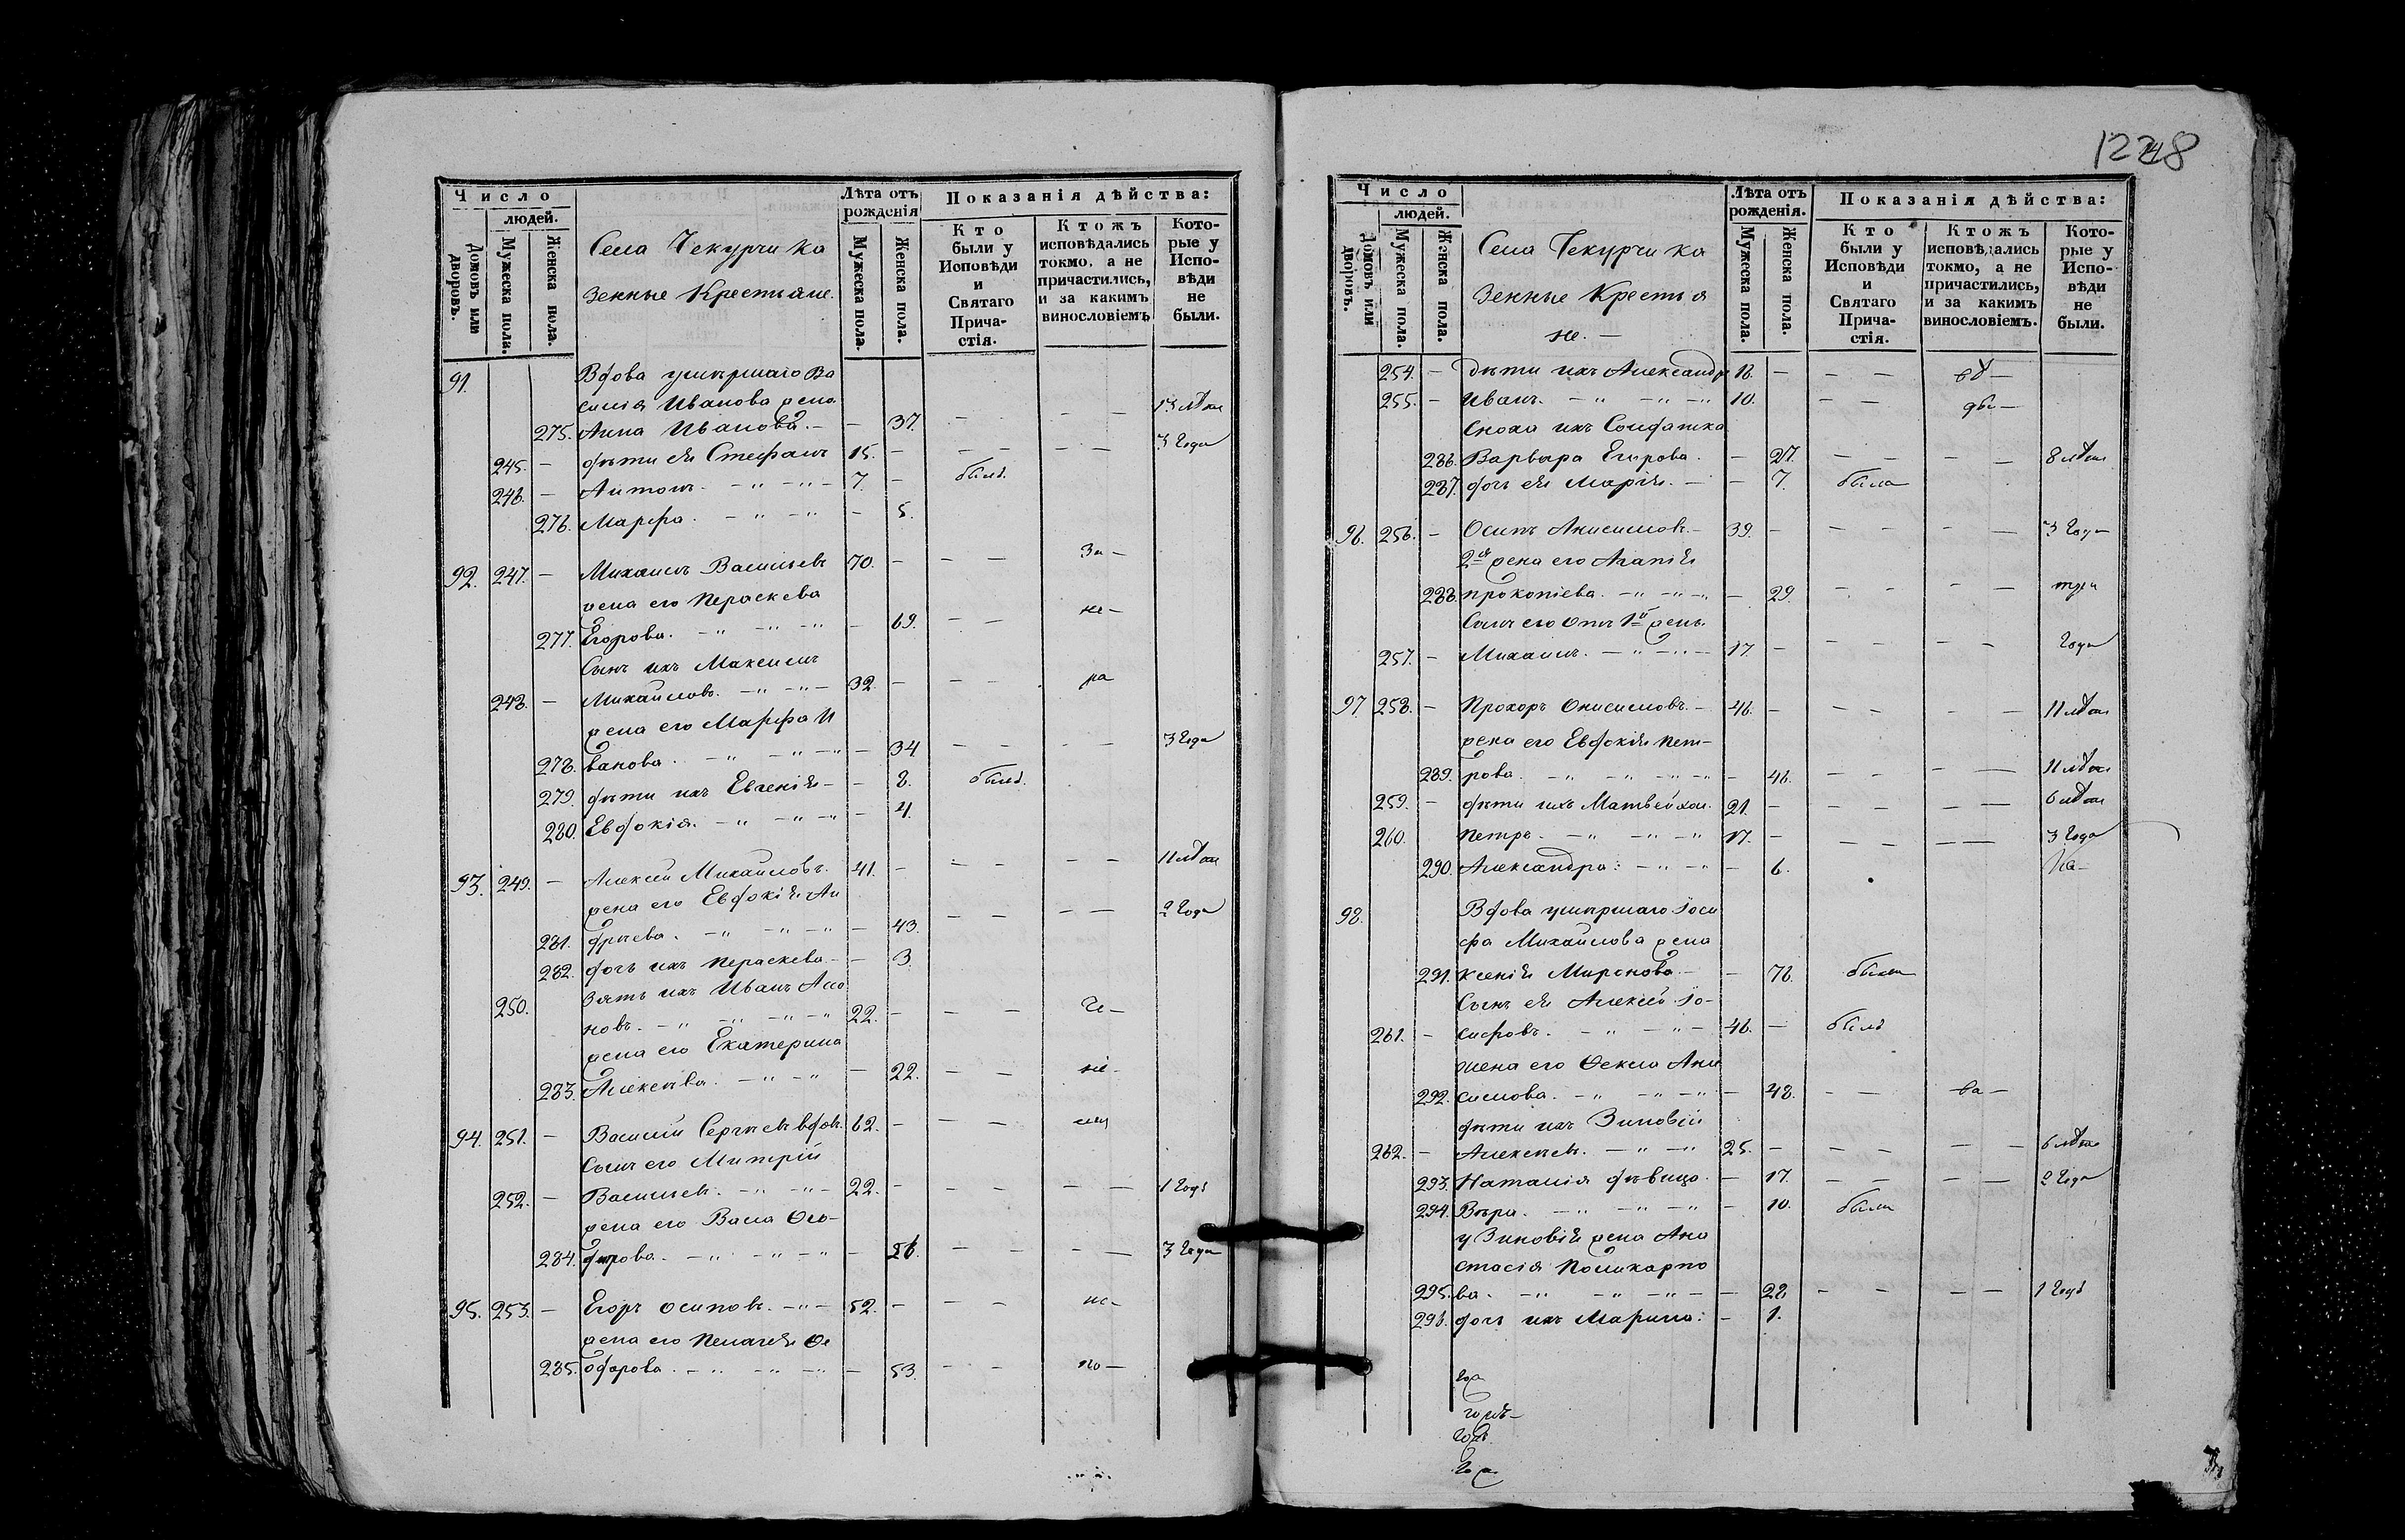 Число
людей.
Домовъ или дворовъ.
Мужеска пола.
Женска пола.
Села Чекурчи ка
зенные Крестьяне.
Лѣта отъ
рожденія
Мужеска пола.
Женска пола.
Показанія дѣйства:
Кто
были у
Исповѣди
и
Святаго
Прича-
стія.
Ктожъ
исповѣдались
токмо, а не
причастились,
и за какимъ
винословіемъ
Кото-
рые у
Испо-
вѣди
не
были.
91. Вдова умершаго Ва
силія Иванова жена
275. Анна Иванова. – – 37. – – – 13 лѣтъ
245. – дѣти ея Стефанъ 15. – – – – – 3 года
246. – Антонъ. – „ – „ – 7. – былъ.
276. Марфа. – „ – „ – 5.
92. 247. – Михаилъ Васильевъ 70. – – – За –
жена его Пераскева
277. Егорова. – „ – „ – „ – 69. – – не –
Сынъ ихъ Максимъ
248. – Михайловъ. – „ – „ – 32. – – – ра
жена его Марфа И
278. ванова. – „ – „ – „ – 34. – – – – 3 года
279. дѣти ихъ Евгенія – – 8. былъ.
280. Евдокія. – „ – „ – „ – 4.
93. 249. – Алексѣй Михайловъ. 41. – – – – – 11 лѣтъ
жена его Евдокія Ан
281. дрѣева. – „ – „ – „ – 43. – – – – 2 года
282. дочь ихъ Пераскева – – 3.
250. Зять ихъ Иванъ
новъ. – „ – „ – „ – „ 22. – – –
жена его Екатерина
283. Алексѣва. – „ – „ – 22. – – ніе –
94. 251. – Василій Сергѣевъ вдов. 62. – – –
Сынъ его Митрій
252. – Васильевъ. – „ – „ – 22. – – – – – 1 годъ
жена его Васса Ѳео-
284. дорова. – „ – „ – „ – 26. – – – – 3 года
95. 253. – Егоръ Осиповъ. – „ – 52. – – – ис –
жена его Пелагея Ѳе
285. одорова. – „ – „ – „ – 53. – – по –
1228
Число
людей.
Домовъ или дворовъ.
Мужеска пола.
Женска пола.
Села Чекурчи ка
зенные Крестья
не. –
Лѣта отъ
рожденія.
Мужеска пола.
Женска пола.
Показанія дѣйства:
Кто
были у
Исповѣди
и
Святаго
Прича-
стія.
Ктожъ
исповѣдались
токмо, а не
причастились,
и за какимъ
винословіемъ.
Кото-
рые у
Испо-
вѣди
не
были.
254. – дѣти ихъ Александръ 18. – – – вѣ –
255. – Иванъ. – „ – „ – „ 10. – – ды –
Сноха ихъ Солдатка
286. Варвара Егирова. – 27. – – – – 8 лѣтъ
287. дочь ея Марія. – – 7. была
96. 256. – Осипъ Анисимовъ. – 39. – – – – – 3 года
2ая жена его Агапія
288. прокопіева. – „ – „ – „ – 29. – – – – три
Сынъ его отъ 1й жены
257. – Михаилъ. – „ – „ – 17. – – – – – года
97. 258. – Прохоръ Онисимовъ. – 46. – – – – – 11 лѣтъ
жена его Евдокія пет-
289. рова. – „ – „ – „ – „ – 46. – – – – 11 лѣтъ
259. – дѣти ихъ Матвей хол. 21. – – – – – 6 лѣтъ
260. петръ. – „ – „ – „ 17. – – – – – 3 года
290. Александра: – „ – „ – 6.
98. Вдова умершаго Іоси
фа Михайлова жена
291. Ксенія Миронова. – – 76. была
Сынъ ея Алексѣй Іо-
261. – сифовъ. – „ – „ – 46. – былъ
жена его Ѳекла Ани
292. симова. – „ – „ – „ – 48. – – ва –
дѣти ихъ Зиновій
262. – Алексѣевъ. – „ – „ 25. – – – – – 6 лѣтъ
293. Наталія дѣвица. – 17. – – – – 2 года
294. Вѣра. – „ – „ – „ – 10. были
у Зиновія жена Ана
стасія Поликарпо
295. ва. – „ – „ – „ – – 22. – – – – 1 годъ
296. дочь ихъ Марина: – 1.